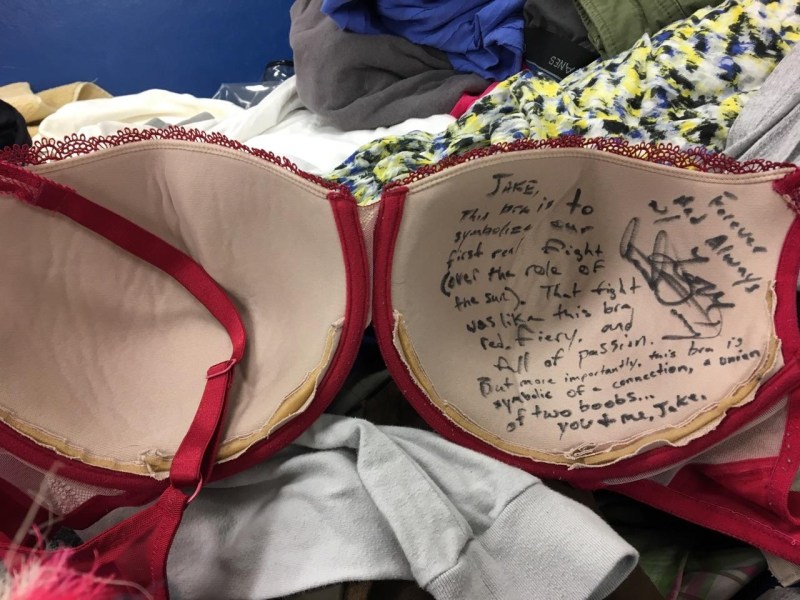 HANES
JAKE,
This bra is to
symbolize our
first real fight
(over the role of
the sun). That fight
was like this bra
red, fiery, and
All of passion.
But more importantly, this bra is
symbolic of a connection, a union
of two boobs...
you + me, Jake.
Forever
and Always